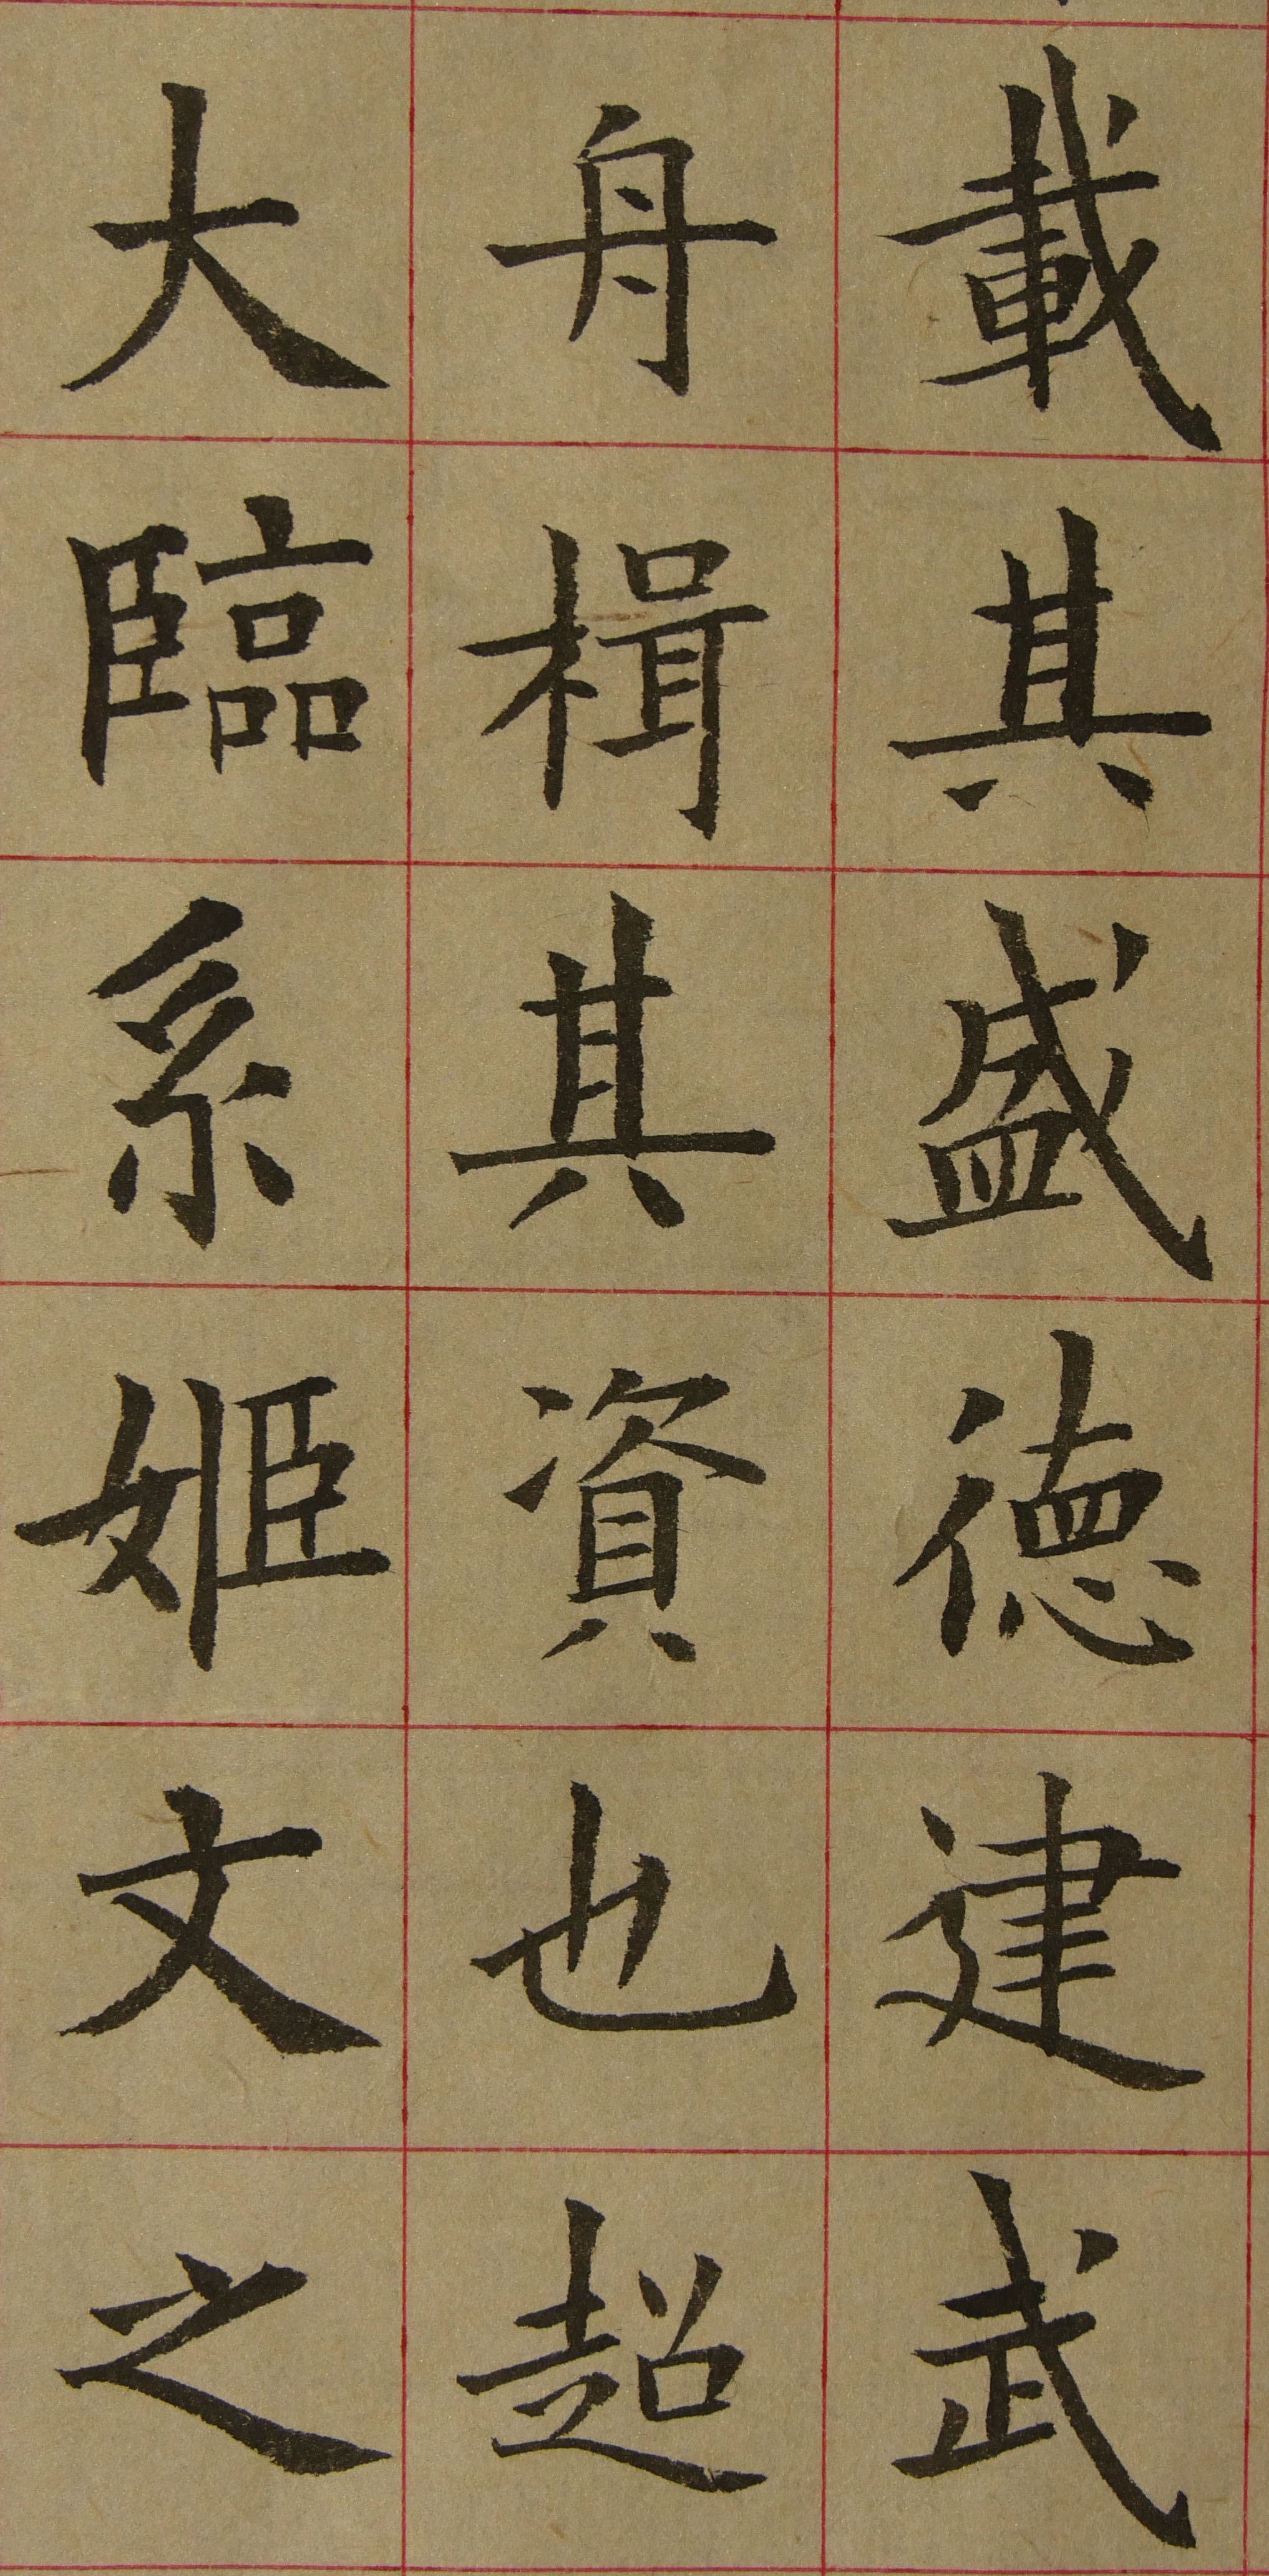 載其盛德建武
舟楫其資也超
大臨系姬文之